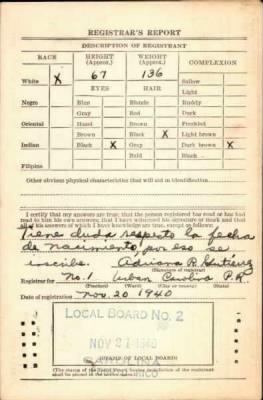 REGISTRAR'S REPORT
DESCRIPTION OF REGISTRANT
RACE
HEIGHT
(Approx.)
WEIGHT
(Approx.)
COMPLEXION
White X
67
136
Sallow
Light
EYES
HAIR
Negro
Blue
Blonde
Ruddy
Gray
Red
Dark
Oriental
Hazel
Brown
Freckled
Brown
Black X
Light brown
Indian
Black X
Gray
Dark brown X
Bald
Black
Filipino
Other obvious physical characteristics that will aid in identification
I certify that my answers are true; that the person registered has read or has had
read to him his own answers; that I have witnessed his signature or mark and that
all of his answers of which I have knowledge are true, except as follows:
Tiene duda respeto la fecha
de nacimiento, por eso se
inscribe. Adriana R. Gutierrez
(Signature of registrar)
Registrar for No. 1 Urban Carolina P.R.
(Precinct) (Ward) (City or county) (State)
Date of registration Nov. 20 1940
LOCAL BOARD NO. 2
NOV 21 1940
CAROLINA
(STAMP OF LOCAL BOARD)